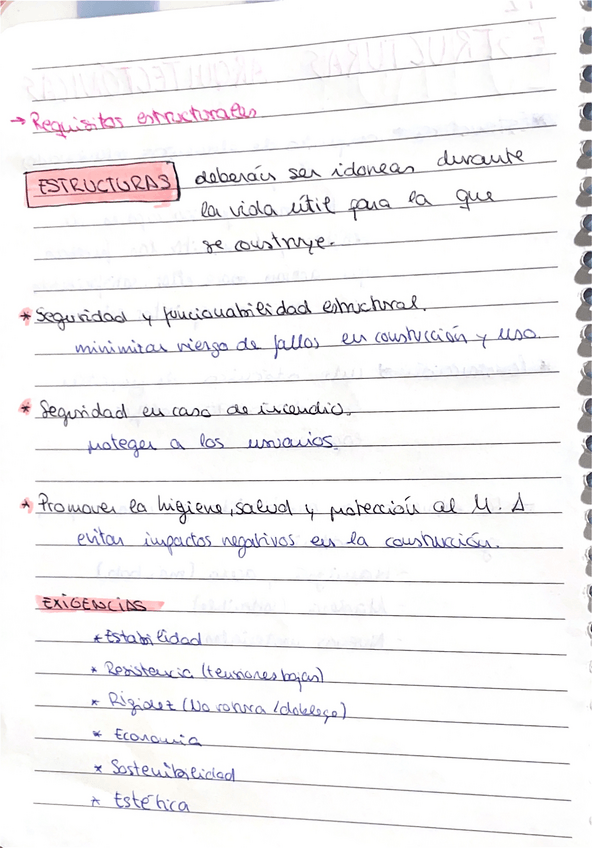 → Requisitos estructurales
ESTRUCTURAS deberán ser idoneas durante
la vida útil para la que
se construye.
* Seguridad y funcionabilidad estructural.
minimizar riesgo de fallos en construcción y uso.
* Seguridad en caso de incendio.
proteger a los usuarios.
* Promover la higiene, salud y protección al M. A
evitar impactos negativos en la construcción.
EXIGENCIAS
* Estabilidad
* Resistencia (tensiones bajas)
* Rigidez (No rotura / doblege)
* Economia
* Sostenibilidad
* Estética